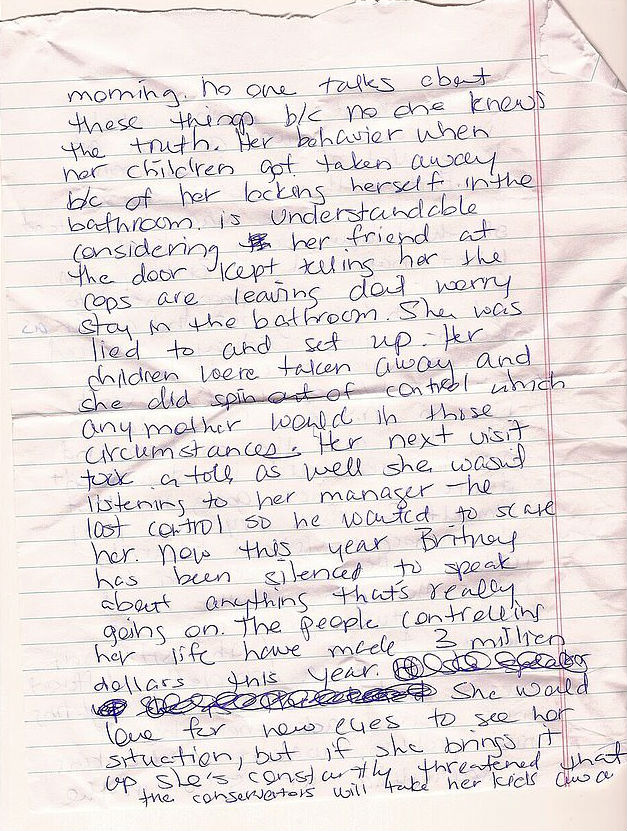 morning. no one talks about
these things b/c no one knows
the truth. Her behavior when
her children got taken away
b/c of her locking herself in the
bathroom. is understandable
considering her friend at
the door kept telling her the
cops are leaving dont worry
stay in the bathroom. She was
lied to and set up. Her
children were taken away and
she did spin out of control which
any mother would in those
circumstances. Her next visit
took a toll as well she wasnt
listening to her manager - he
lost control so he wanted to scare
her. Now this year Britney
has been silenced to speak
about anything that's really
going on. The people controlling
her life have made 3 million
dollars this year.
She would
love for new eyes to see her
situation, but if she brings it
up she's constantly threatened that
the conservators will take her kids awa